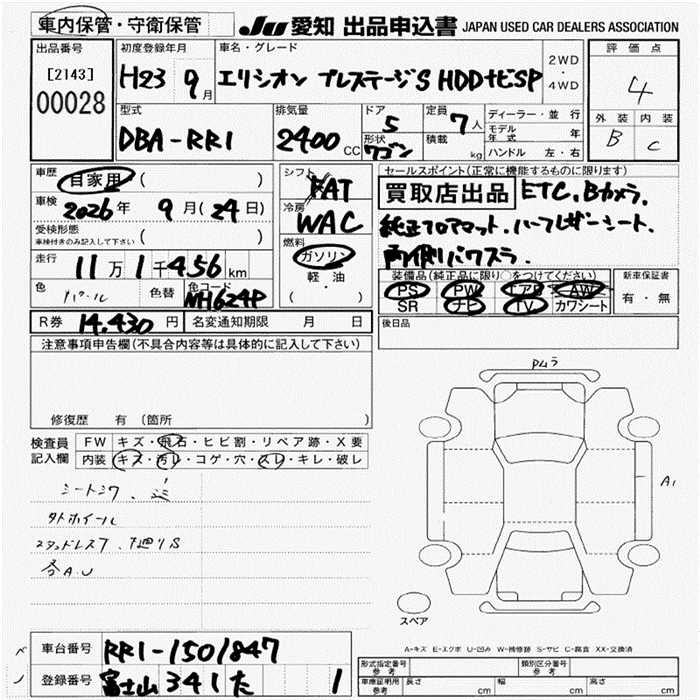 車内保管・守衛保管
JU 愛知 出品申込書 JAPAN USED CAR DEALERS ASSOCIATION
出品番号
[2143]
00028
初度登録年月
H23 9月
車名・グレード
エリシオン プレステージS HDDナビSP
2WD・4WD
評価点
4
外装 内装
B C
型式
DBA-RR1
排気量
2400 CC
ドア
5
形状
ワゴン
定員
7人
積載
kg
ディーラー・並行
モデル年式 年
ハンドル 左・右
車歴
自家用 ( )
車検
2026年 9月(24日)
受検形態
車検付きのみ記入して下さい ( )
走行
11万1千456km
色
パール
色替
色コード
NH624P
シフト
FAT
冷房
WAC
燃料
ガソリン
軽・油
( ・ )
セールスポイント(正常に機能するものに限ります)
買取店出品 ETC.Bカメラ.
純正フロアマット.ハーフレザーシート.
両側パワスラ.
装備品(純正品に限り○をつけてください)
PS PW エアB AW
SR ナビ TV カワシート
新車保証書
有・無
R券 14,430円
名変通知期限 月 日
後日品
注意事項申告欄(不具合内容等は具体的に記入して下さい)
修復歴 有 (箇所 )
検査員記入欄
FW キズ・飛石・ヒビ割・リペア跡・X要
内装 キズ・汚レ・コゲ・穴・スレ・キレ・破レ
シートシワ.
タトホイール
スタッドレス7.
各A.U
PMラ
A1
スペア
A-キズ E-エクボ U-凹み W-補修跡 S-サビ C-腐食 XX-交換済
車台番号 RR1-1501847
登録番号 富士山 341 た 1
型式指定番号
参考
類別区分番号
参考
車庫証明用
参考
長さ cm
幅 cm
高さ cm